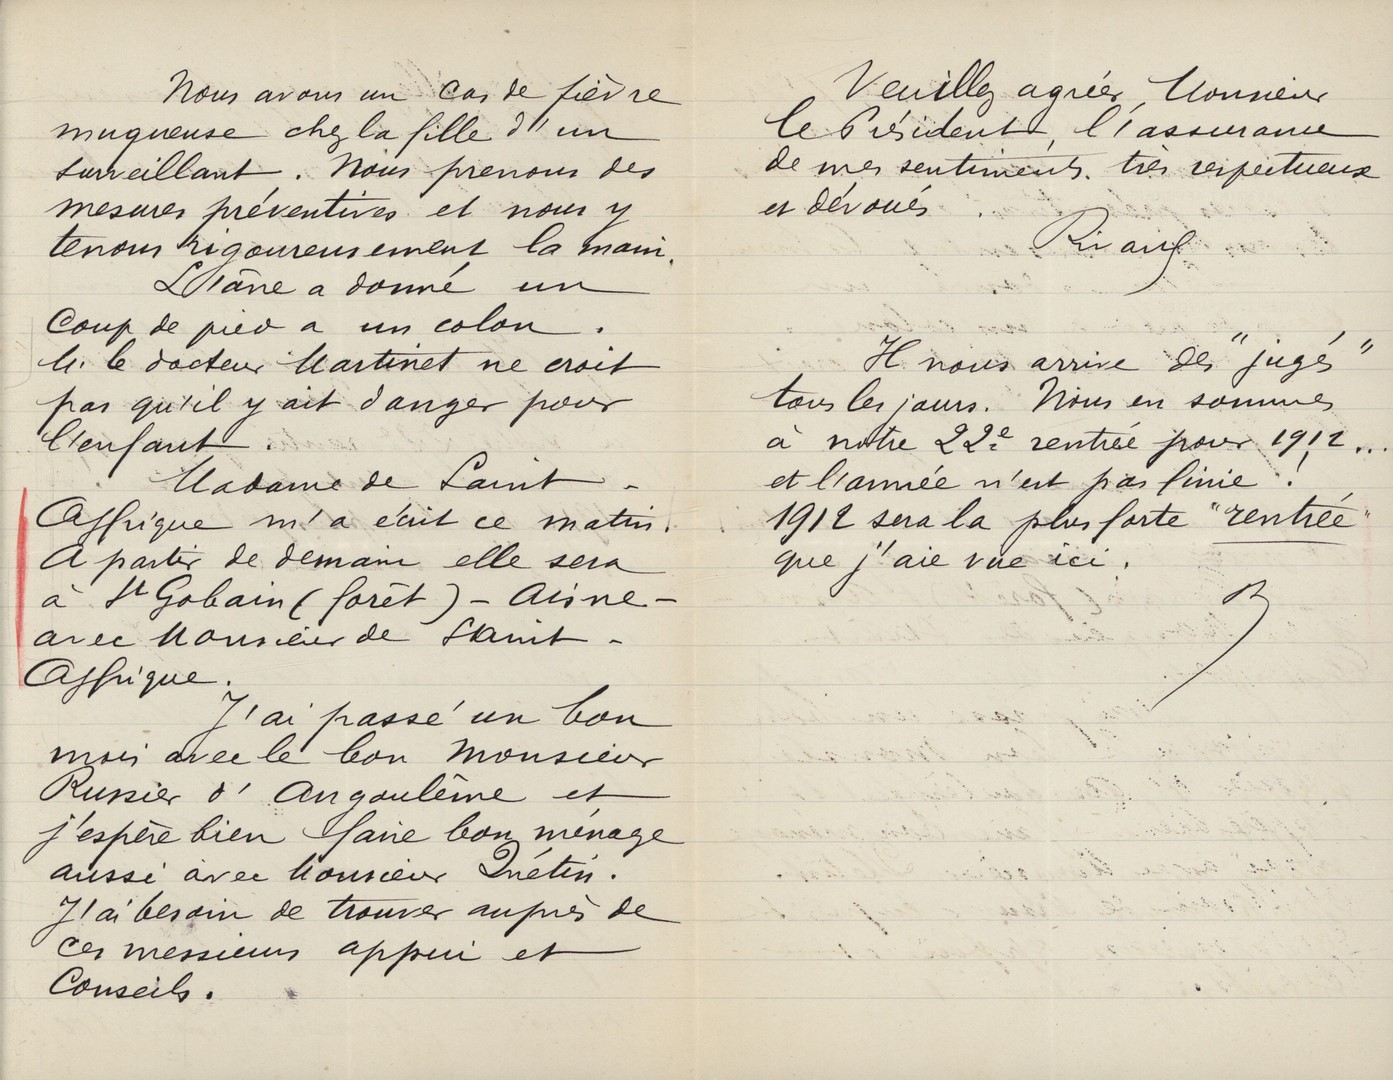 Nous avons un cas de fièvre
muqueuse chez la fille d'un
surveillant. Nous prenons des
mesures préventives et nous y
tenons rigoureusement la main.
L'âne a donné un
coup de pied a un colon.
M. le docteur Martinet ne croit
pas qu'il y ait danger pour
l'enfant.
Madame de Saint-
Affrique m'a écrit ce matin.
A partir de demain elle sera
à St Gobain (forêt) - Aisne -
avec Monsieur de Saint-
Affrique.
J'ai passé un bon
mois avec le bon Monsieur
Russier d'Angoulême et
j'espère bien faire bon ménage
aussi avec Monsieur Quétin.
J'ai besoin de trouver auprès de
ces messieurs appui et
Conseils.
Veuillez agréer, Monsieur
le Président, l'assurance
de mes sentiments très respectueux
et dévoués.
Il nous arrive des "jugés"
tous les jours. Nous en sommes
à notre 22e rentrée pour 1912...
et l'année n'est pas finie !
1912 sera la plus forte "rentrée"
que j'aie vue ici.
R